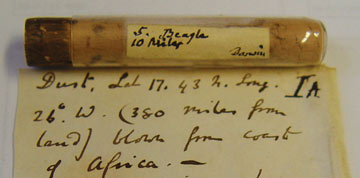 5. Beagle
10 Miles
Darwin
Dust, Lat 17. 43 N. Long. IA
26° W. (380 miles from
land) blown from coast
of Africa. —